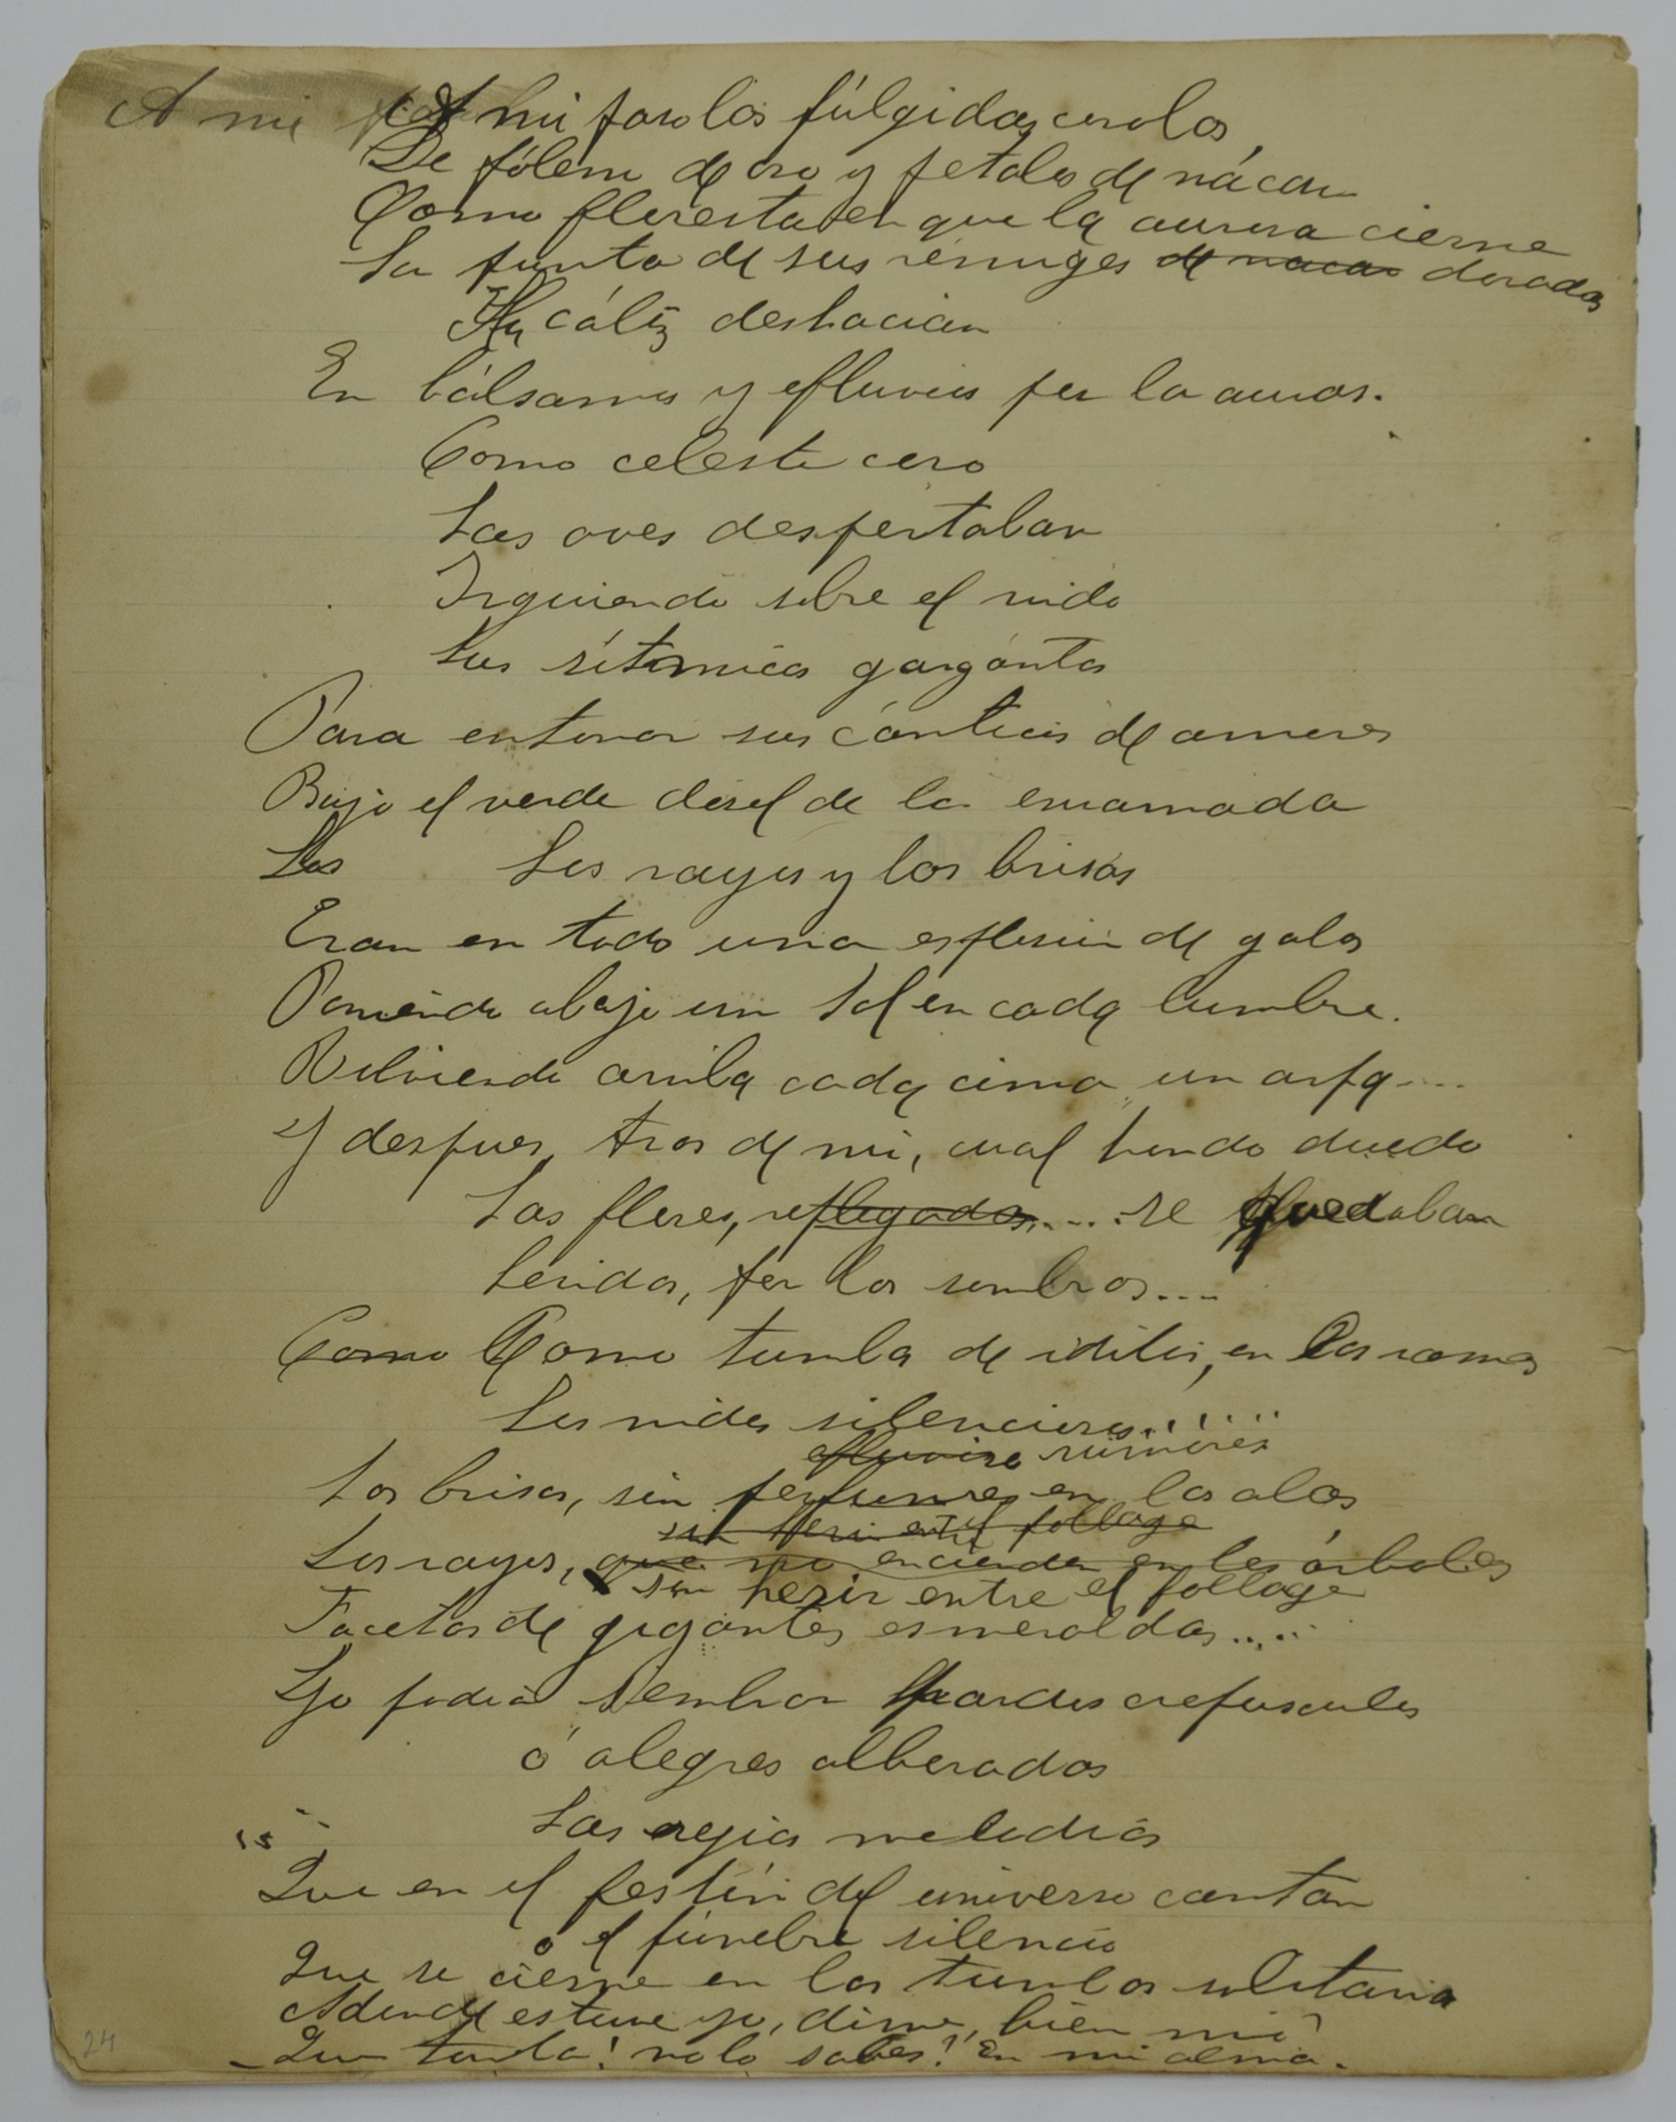 A mi A mi paso las fúlgidas corolas,
De pólem de oro y petalos de nácar
Como floresta en que la aurora cierne
La punta de sus rémiges de nacar doradas
Su cáliz deshacian
En bálsamos y efluvios por las auras.
Como celeste coro
Las aves despertaban
Irguiendo sobre el nido
Sus rítmicas gargántas
Para entonar sus cánticos de amores
Bajo el verde dosel de la enramada
Los Los rayos y las brisas
Eran en todo una esplosion de galas
Poniendo abajo un Sol en cada lumbre.
Volviendo arriba cada cima un arpa....
Y despues, tras de mi, cual hondo duedo
Las flores, replegadas..... se quedaban
heridas, por las sombras....
Como Como tumba de idilios, en las ramas
Los nidos silenciosos......
efluvios rumores
Las brisas, sin perfumes en las alas
sin herir entre el follage
Los rayos, que no encienden en los árboles
sin herir entre el follage
Facetas de gigantes esmeraldas.....
Yo podia sembrar pardos crepusculos
ó alegres alboradas
Las regias melodias
Que en el festín del universo cantan
o el fúnebre silencio
Que se cierne en las tumbas solitaria
Adonde estuve yo, dime, bien mio?
Que tumba! no lo sabes? En mi alma.
24